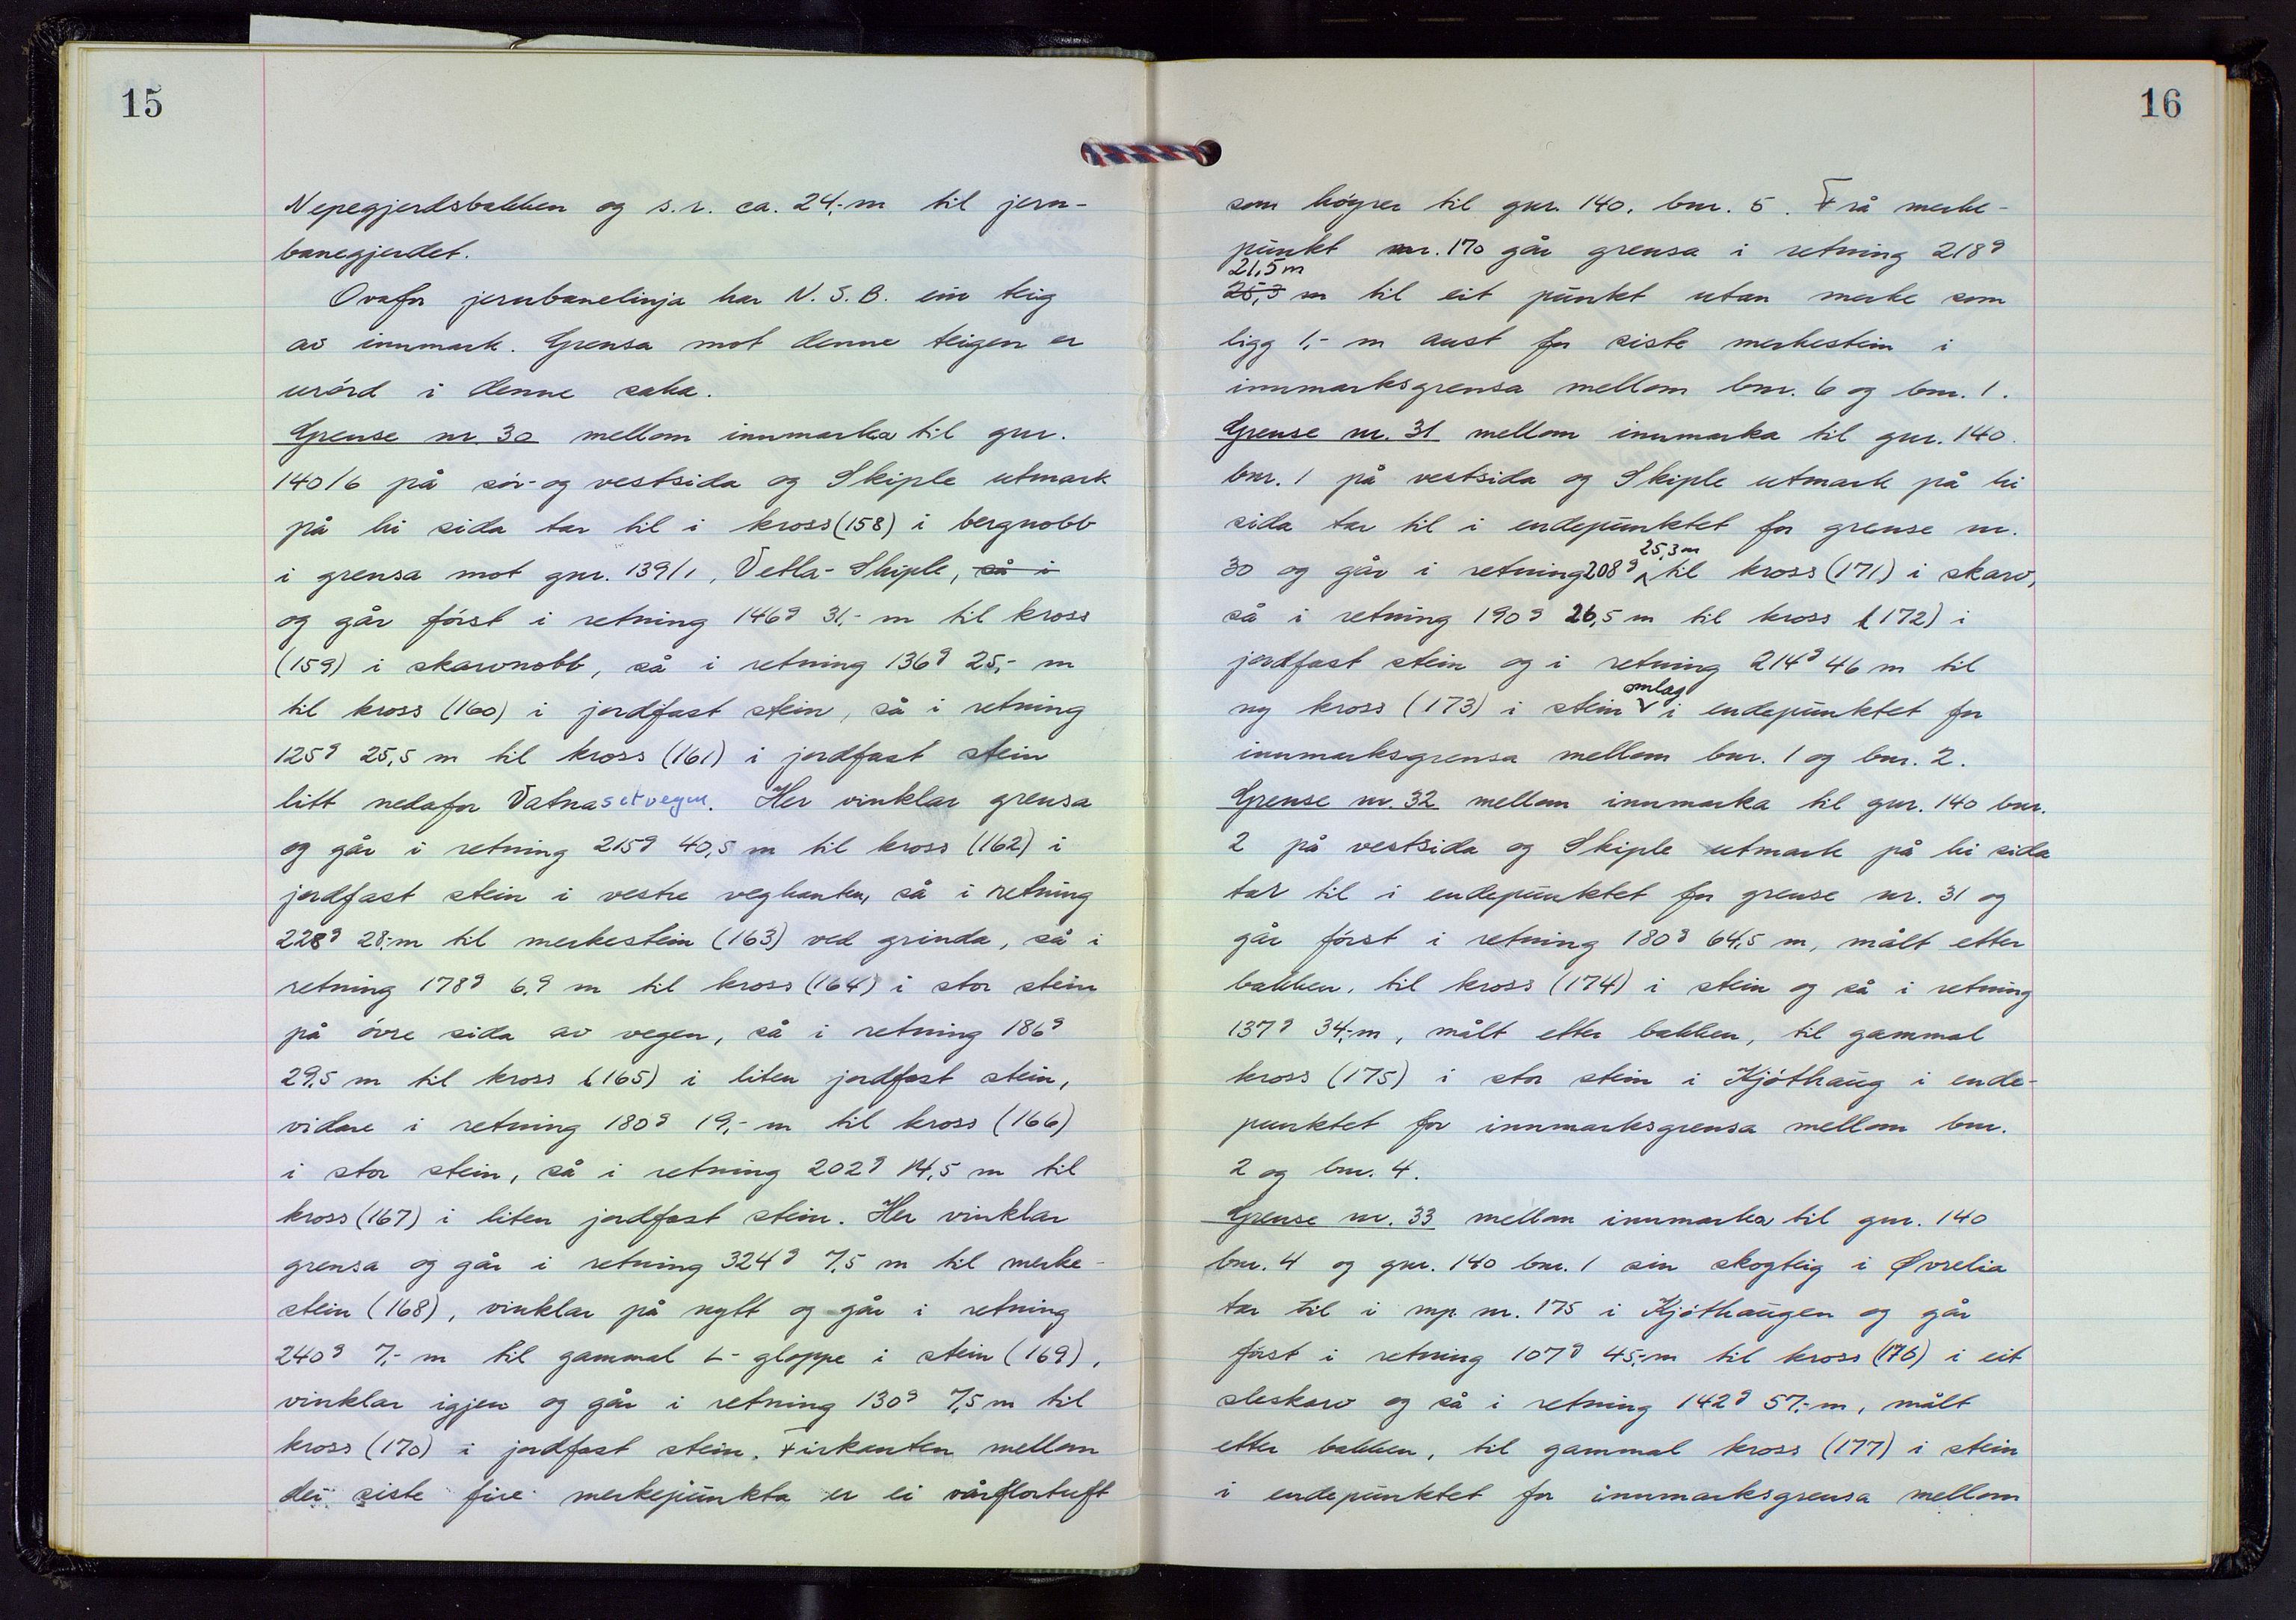 15
Nepegjerdsbakken og s.r. ca. 24,- m til jern-
banegjerdet.
Ovafor jernbanelinja har N.S.B. ein teig
av innmark. Grensa mot denne teigen er
urörd i denne saka.
Grense nr. 30 mellom innmarka til gnr.
140/6 på sör- og vestsida og Skiple utmark
på hi sida tar til i kross (158) i bergnobb
i grensa mot gnr. 139/1, Vetla-Skiple, så i
og går först i retning 146g 31,- m til kross
(159) i skarvnobb, så i retning 136g 25,- m
til kross (160) i jordfast stein, så i retning
125g 25,5 m til kross (161) i jordfast stein
litt nedafor Vatnasetvegen. Her vinklar grensa
og går i retning 215g 40,5 m til kross (162) i
jordfast stein i vestre vegkanten, så i retning
228g 28,- m til merkestein (163) ved grinda, så i
retning 178g 6,9 m til kross (164) i stor stein
på övre sida av vegen, så i retning 186g
29,5 m til kross (165) i liten jordfast stein,
vidare i retning 180g 19,- m til kross (166)
i stor stein, så i retning 202g 14,5 m til
kross (167) i liten jordfast stein. Her vinklar
grensa og går i retning 324g 7,5 m til merke-
stein (168), vinklar på nytt og går i retning
240g 7,- m til gammal L-gloppe i stein (169),
vinklar igjen og går i retning 130g 7,5 m til
kross (170) i jordfast stein. Firkanten mellom
dei siste fire merkepunkta er ei vårflortuft
16
som höyrer til gnr. 140, bnr. 5. Frå merke-
punkt nr. 170 går grensa i retning 218g
21,5 m
25,3 m til eit punkt utan merke som
ligg 1,- m aust for siste merkestein i
innmarksgrensa mellom bnr. 6 og bnr. 1.
Grense nr. 31 mellom innmarka til gnr. 140
bnr. 1 på vestsida og Skiple utmark på hi
sida tar til i endepunktet for grense nr.
25,3 m
30 og går i retning 208g til kross (171) i skarv,
så i retning 190g 26,5 m til kross (172) i
jordfast stein og i retning 214g 46 m til
omlag
ny kross (173) i stein i endepunktet for
innmarksgrensa mellom bnr. 1 og bnr. 2.
Grense nr. 32 mellom innmarka til gnr. 140 bnr.
2 på vestsida og Skiple utmark på hi sida
tar til i endepunktet for grense nr. 31 og
går först i retning 180g 64,5 m, målt etter
bakken, til kross (174) i stein og så i retning
137g 34,- m, målt etter bakken, til gammal
kross (175) i stor stein i Kjöthaug i ende-
punktet for innmarksgrensa mellom bnr.
2 og bnr. 4.
Grense nr. 33 mellom innmarka til gnr. 140
bnr. 4 og gnr. 140 bnr. 1 sin skogteig i Øvrelia
tar til i mp. nr. 175 i Kjöthaugen og går
först i retning 107g 45,- m til kross (176) i eit
sleskarv og så i retning 142g 57,- m, målt
etter bakken, til gammal kross (177) i stein
i endepunktet for innmarksgrensa mellom